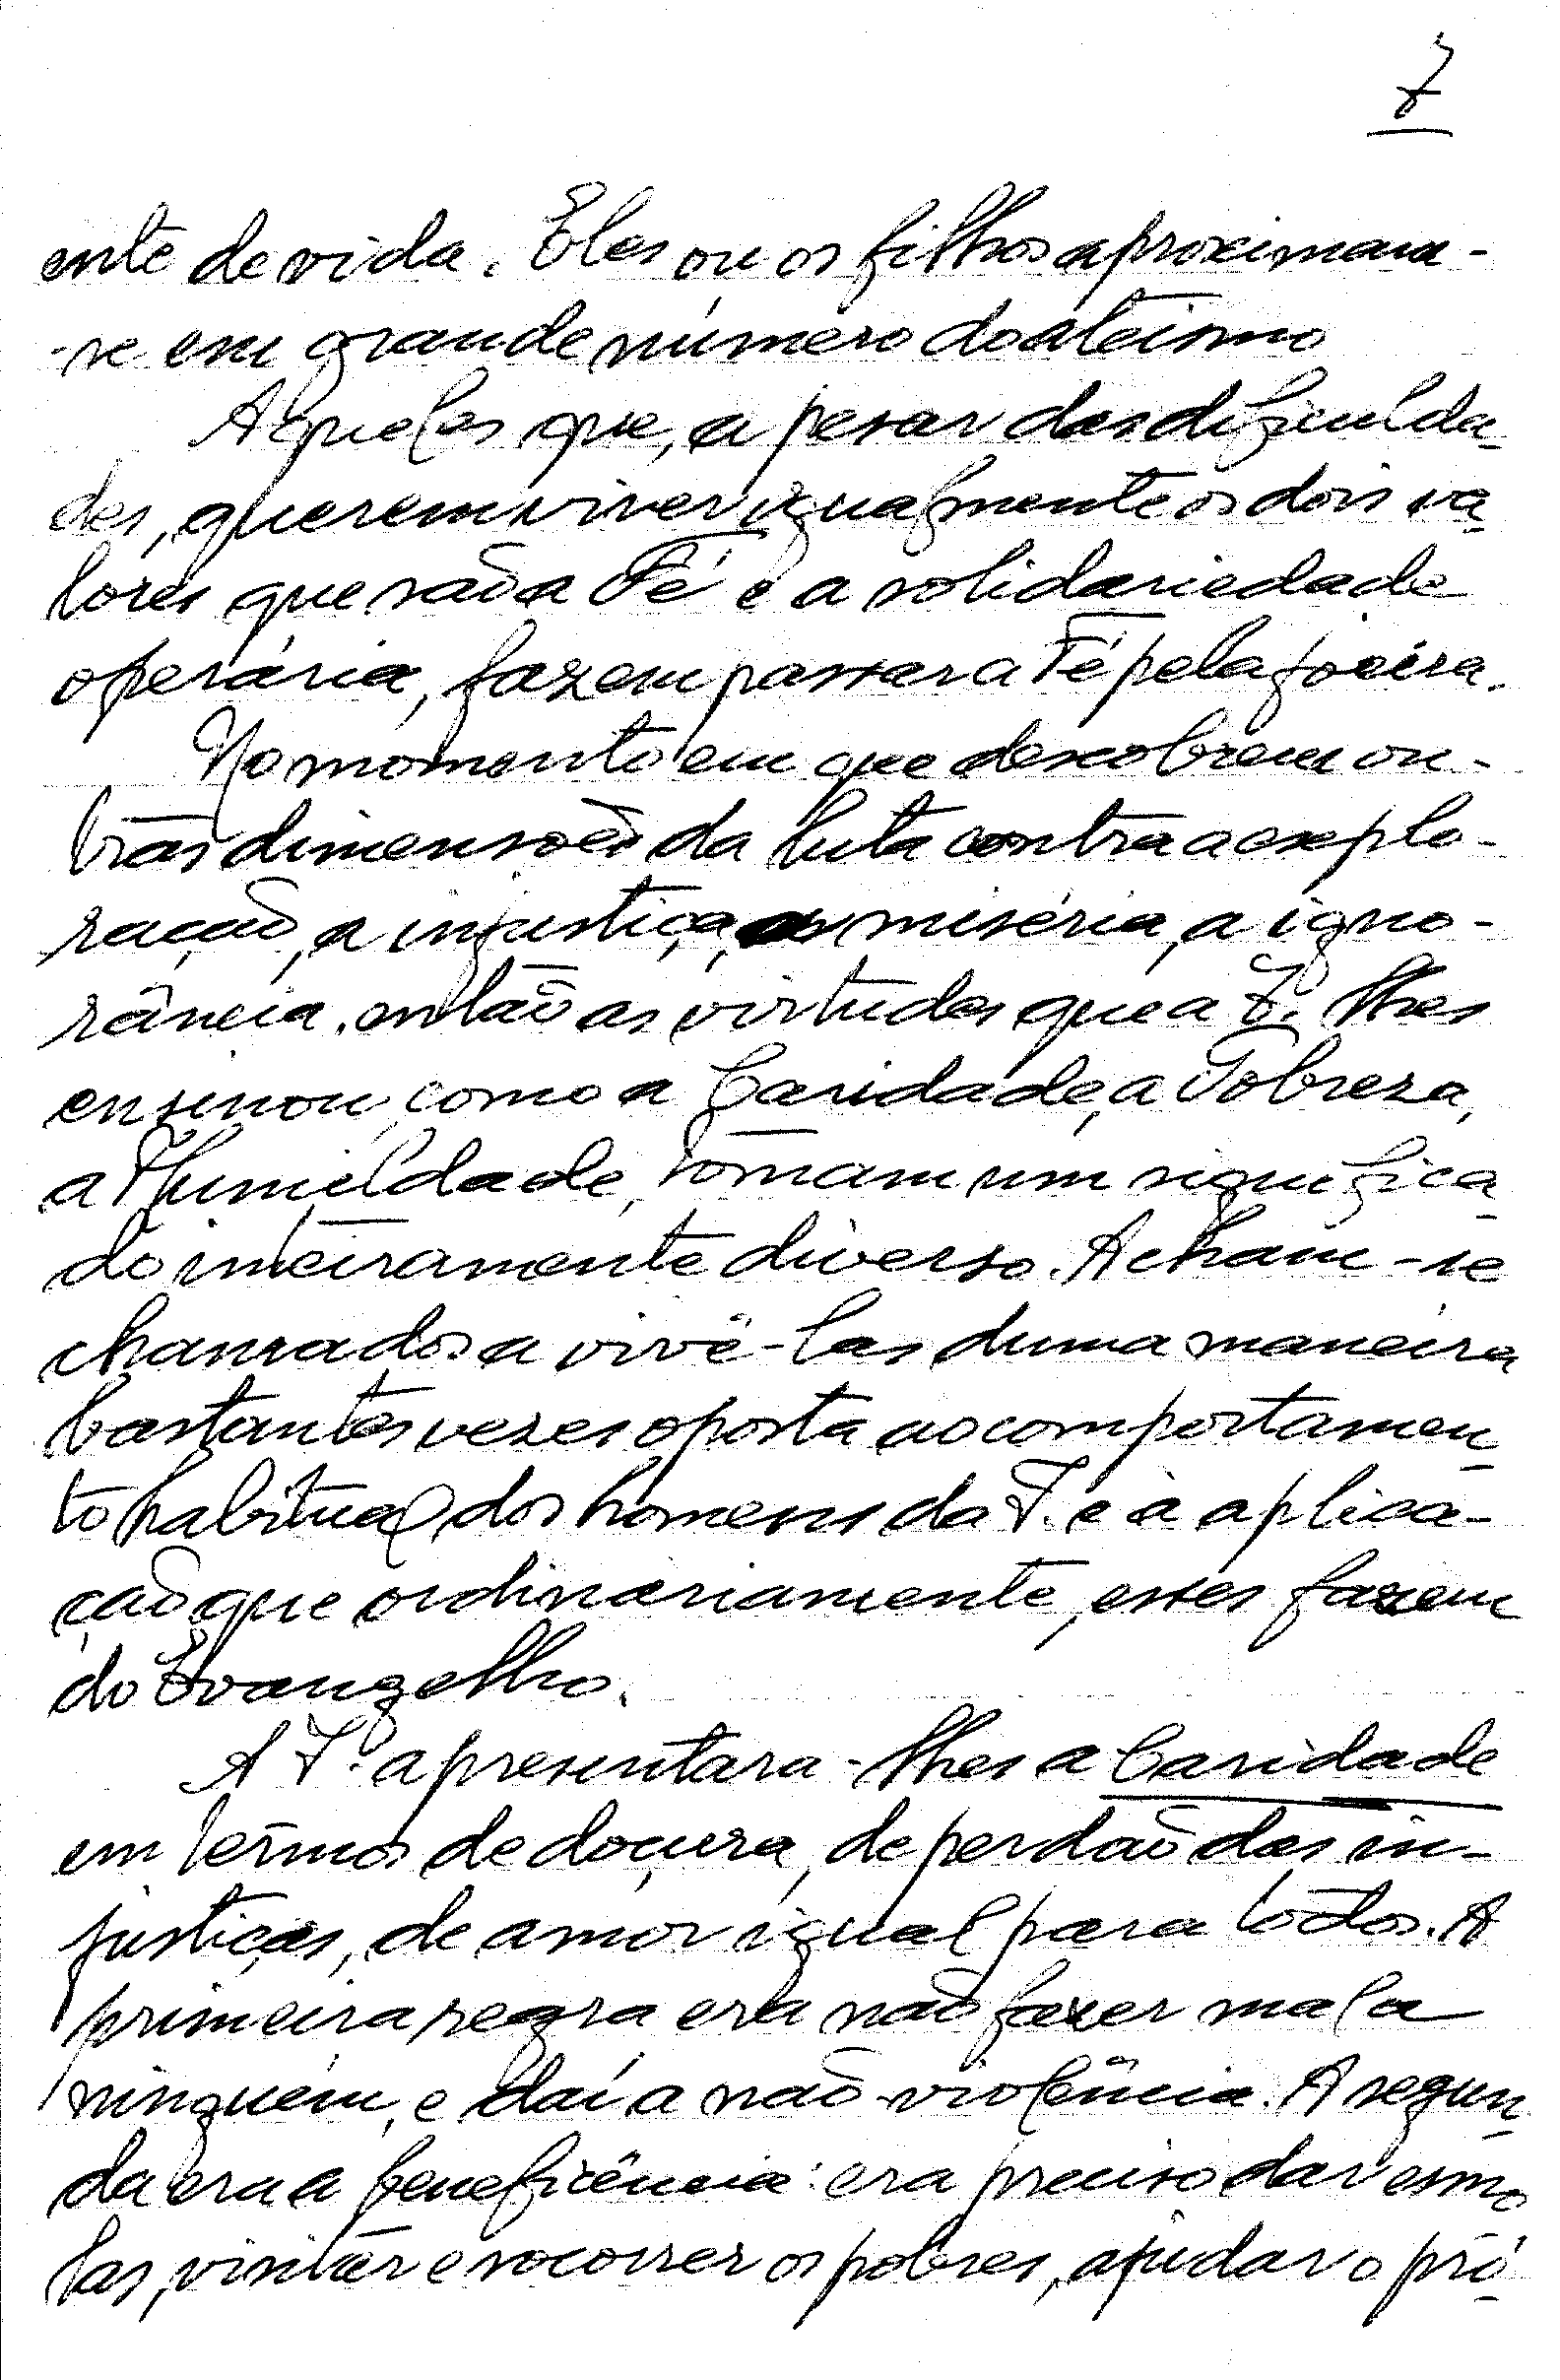 7
ente de vida. Eles ou os filhos aproximam-
-se em grande número do ateísmo
Aqueles que, a pesar das dificulda-
des, querem viver igualmente os dois va-
lores que são a Fé e a solidariedade
operária, fazem passar a Fé pela joeira.
No momento em que descobrem ou-
tras dimensões da luta contra a explo-
ração, a injustiça, a miséria, a igno-
rância, então as virtudes que a I. lhes
ensinou, como a Caridade, a Pobreza,
a Humildade, tomam um significa-
do inteiramente diverso. Acham-se
chamados a vivê-las duma maneira
bastantes vezes oposta ao comportamen-
to habitual dos homens da I. e à aplica-
ção que ordinariamente, esses fazem
do Evangelho.
A I. apresentara-lhes a Caridade
em termos de doçura, de perdão das in-
justiças, de amor igual para todos. A
primeira regra era não fazer mal a
ninguém, e daí a não-violência. A segun-
da era a beneficência: era preciso dar esmo-
las, visitar e socorrer os pobres, ajudar o pró-